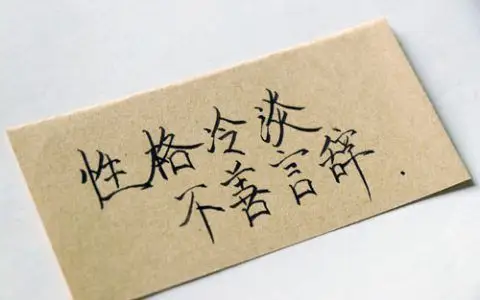 性格冷淡
不善言辞.